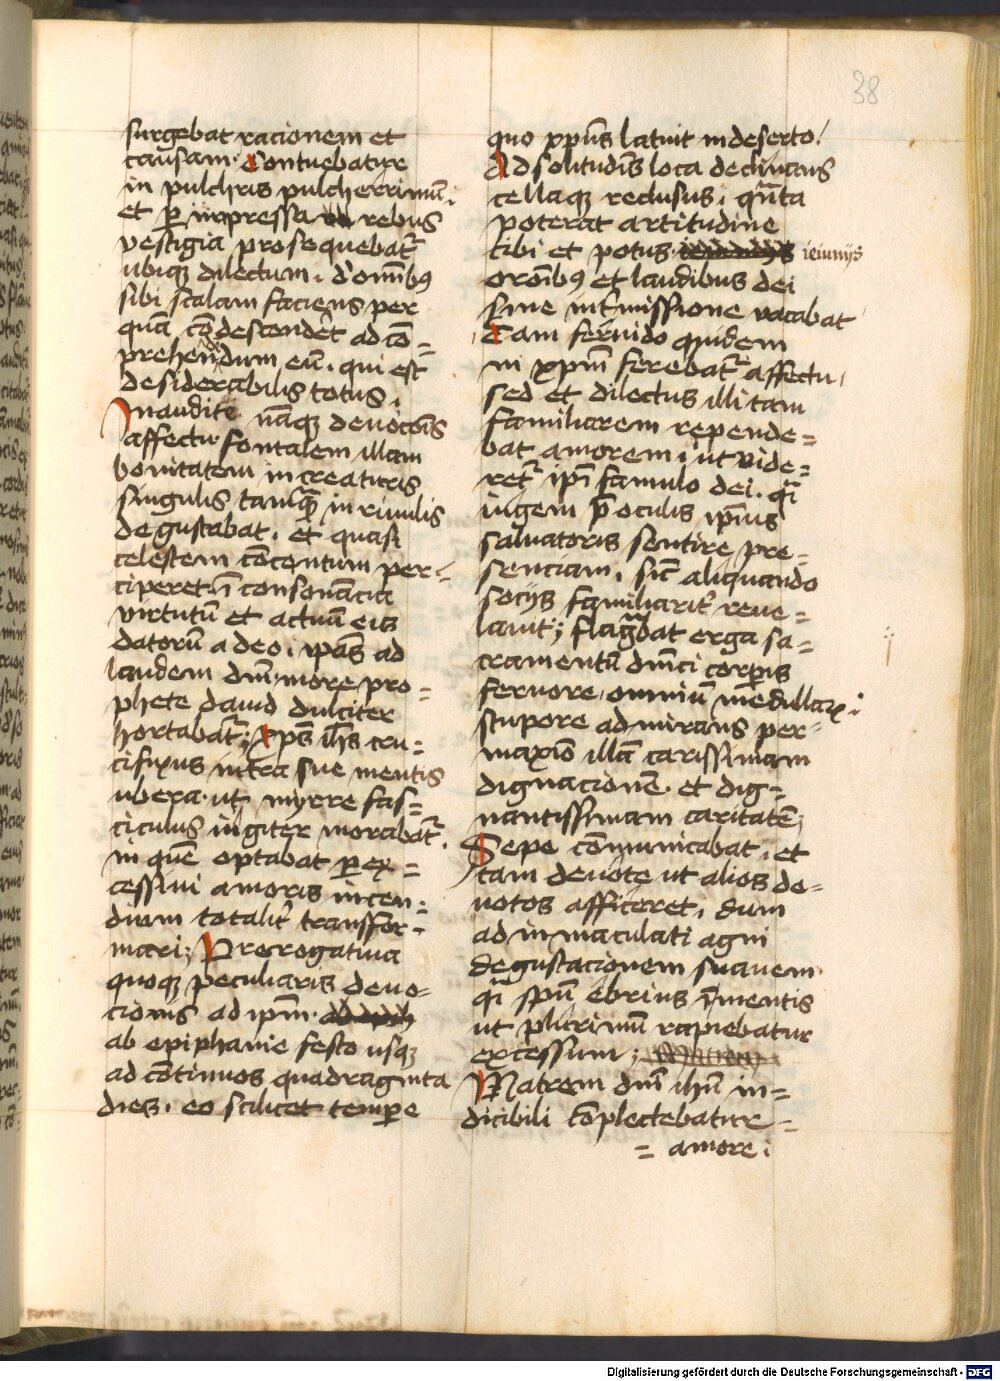 38
surgebat racionem et
causam. Contuebatur
in pulchris pulcherrimū.
et ꝑ impressa rebus
vestigia prosequebat᷑
ubiqꝫ dilectum. d'omībꝰ
sibi scalam faciens per
quā cōdescendet ad cō=
prehendendum eū. qui est
desiderabilis totus.
Inaudite nāqꝫ deuocōis
affectu fontalem illam
bonitatem in creaturis
singulis tamqꝫ in riuulis
degustabat. et quasi
celestem cōcentum per=
ciperet ī consonācia
virtutū et actuū eis
datorū a deo. ipās ad
laudem dnī more pro=
phete dauid dulciter
hortabat᷑; xp̄s ih̄s cru=
cifixus intra sue mentis
ubera. ut myrre fas=
ciculus iugiter morabat᷑.
in quē optabat ꝑ ex=
cessiui amoris incen=
dium totalit᷑ transfor=
mari; Prerogatiua
quoqꝫ peculiaris deuo=
cionis ad ip̄m
ab epiphanie festo usqꝫ
ad cōtinuos quadraginta
dies. eo scilicet tempore
quo xp̄us latuit in deserto!
Ad solitudīs loca declinans
cellaqꝫ reclusus. qūta
poterat artitudine
cibi et potus ieiunijs
orōībꝰ et laudibus dei
sine int᷑missione vacabat
Tam feruido quidem
in xp̄m ferebat᷑ affectu,
sed et dilectus illi tam
familiarem repende=
bat amorem. ut vide=
ret᷑ ip̄i famulo dei. qī
iugem p̄ oculis ip̄ius
saluatoris sentire pre=
senciam. sic̄ aliquando
socijs familiarit᷑ reue=
lauit; flagrabat erga sa=
cramentū dnīci corꝑis
feruore omniū medullarꝫ.
stupore admirans per=
maxīo illā carissimam
dignacionē. et dig=
nantissimam caritatē;
Sepe cōmunicabat. et
tam deuote ut alios de=
uotos afficeret. dum
ad inmaculati agni
degustacionem suauem
qī spū ebrius ī mentis
ut plurimū rapiebatur
excessum;
Matrem dnī ih̄u in=
dicibili cōplectebatur=
= amore.
Digitalisierung gefördert durch die Deutsche Forschungsgemeinschaft - DFG